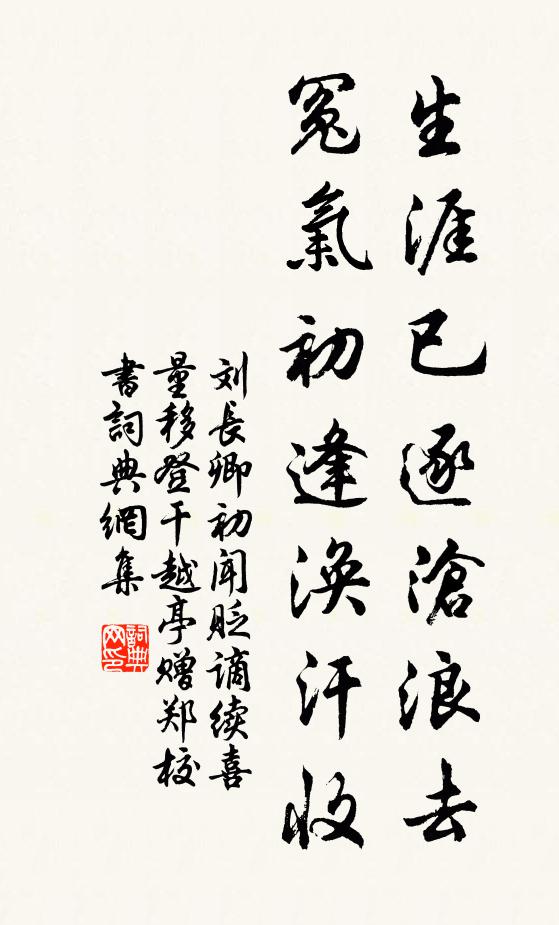 生涯已逐滄浪去
冤氣初逢渙汗收
刘長卿初闻貶谪续喜
量移登干越亭赠郑校
書詞典網集
詞典网印